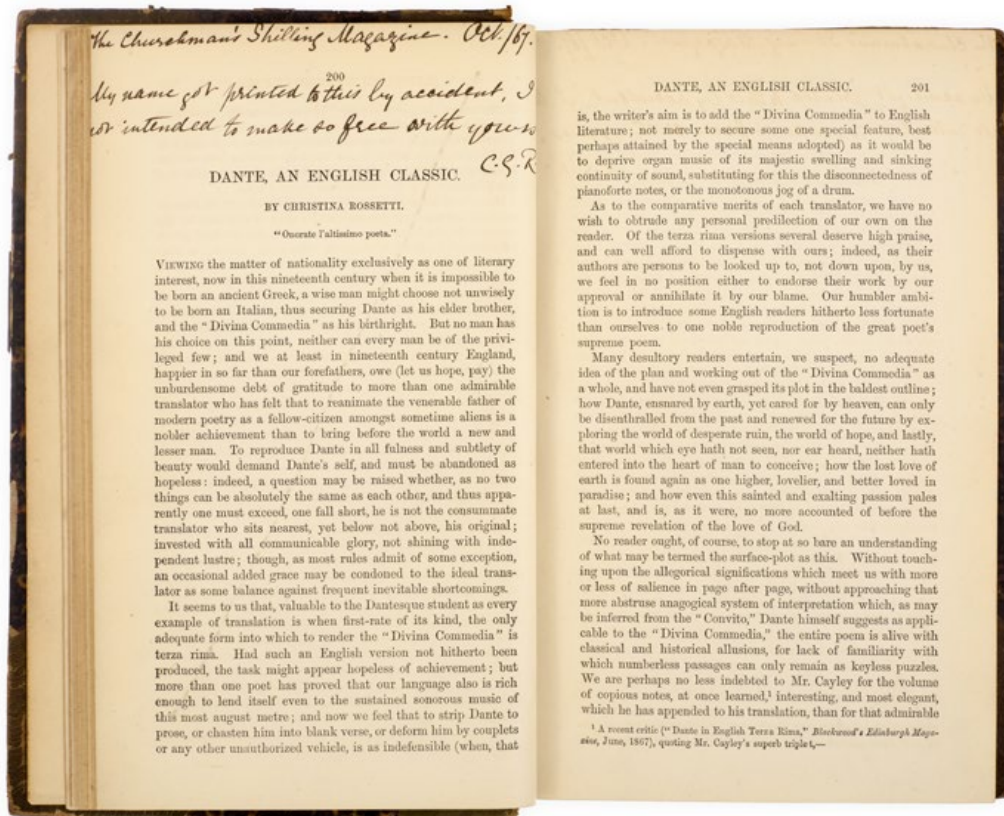 The Churchman's Shilling Magazine. Oct./67.
200
My name got printed to this by accident, I
not intended to make so free with yours
C.G.R
DANTE, AN ENGLISH CLASSIC.
BY CHRISTINA ROSSETTI.
"Onorate l'altissimo poeta."
VIEWING the matter of nationality exclusively as one of literary
interest, now in this nineteenth century when it is impossible to
be born an ancient Greek, a wise man might choose not unwisely
to be born an Italian, thus securing Dante as his elder brother,
and the "Divina Commedia" as his birthright. But no man has
his choice on this point, neither can every man be of the privi-
leged few; and we at least in nineteenth century England,
happier in so far than our forefathers, owe (let us hope, pay) the
unburdensome debt of gratitude to more than one admirable
translator who has felt that to reanimate the venerable father of
modern poetry as a fellow-citizen amongst sometime aliens is a
nobler achievement than to bring before the world a new and
lesser man. To reproduce Dante in all fulness and subtlety of
beauty would demand Dante's self, and must be abandoned as
hopeless: indeed, a question may be raised whether, as no two
things can be absolutely the same as each other, and thus appa-
rently one must exceed, one fall short, he is not the consummate
translator who sits nearest, yet below not above, his original;
invested with all communicable glory, not shining with inde-
pendent lustre; though, as most rules admit of some exception,
an occasional added grace may be condoned to the ideal trans-
lator as some balance against frequent inevitable shortcomings.
It seems to us that, valuable to the Dantesque student as every
example of translation is when first-rate of its kind, the only
adequate form into which to render the "Divina Commedia" is
terza rima. Had such an English version not hitherto been
produced, the task might appear hopeless of achievement; but
more than one poet has proved that our language also is rich
enough to lend itself even to the sustained sonorous music of
this most august metre; and now we feel that to strip Dante to
prose, or chasten him into blank verse, or deform him by couplets
or any other unauthorized vehicle, is as indefensible (when, that
DANTE, AN ENGLISH CLASSIC. 201
is, the writer's aim is to add the "Divina Commedia" to English
literature; not merely to secure some one special feature, best
perhaps attained by the special means adopted) as it would be
to deprive organ music of its majestic swelling and sinking
continuity of sound, substituting for this the disconnectedness of
pianoforte notes, or the monotonous jog of a drum.
As to the comparative merits of each translator, we have no
wish to obtrude any personal predilection of our own on the
reader. Of the terza rima versions several deserve high praise,
and can well afford to dispense with ours; indeed, as their
authors are persons to be looked up to, not down upon, by us,
we feel in no position either to endorse their work by our
approval or annihilate it by our blame. Our humbler ambi-
tion is to introduce some English readers hitherto less fortunate
than ourselves to one noble reproduction of the great poet's
supreme poem.
Many desultory readers entertain, we suspect, no adequate
idea of the plan and working out of the "Divina Commedia" as
a whole, and have not even grasped its plot in the baldest outline;
how Dante, ensnared by earth, yet cared for by heaven, can only
be disenthralled from the past and renewed for the future by ex-
ploring the world of desperate ruin, the world of hope, and lastly,
that world which eye hath not seen, nor ear heard, neither hath
entered into the heart of man to conceive; how the lost love of
earth is found again as one higher, lovelier, and better loved in
paradise; and how even this sainted and exalting passion pales
at last, and is, as it were, no more accounted of before the
supreme revelation of the love of God.
No reader ought, of course, to stop at so bare an understanding
of what may be termed the surface-plot as this. Without touch-
ing upon the allegorical significations which meet us with more
or less of salience in page after page, without approaching that
more abstruse anagogical system of interpretation which, as may
be inferred from the "Convito," Dante himself suggests as appli-
cable to the "Divina Commedia," the entire poem is alive with
classical and historical allusions, for lack of familiarity with
which numberless passages can only remain as keyless puzzles.
We are perhaps no less indebted to Mr. Cayley for the volume
of copious notes, at once learned,¹ interesting, and most elegant,
which he has appended to his translation, than for that admirable
¹ A recent critic ("Dante in English Terza Rima," Blackwood's Edinburgh Maga-
zine, June, 1867), quoting Mr. Cayley's superb triplet,—